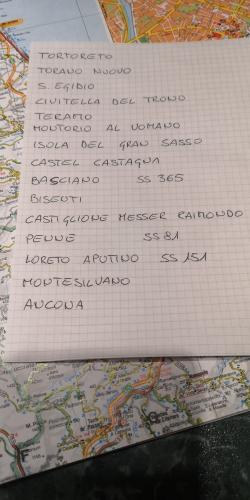 TORTORETO
TORANO NUOVO
S. EGIDIO
CIVITELLA DEL TRONO
TERAMO
MONTORIO AL VOMANO
ISOLA DEL GRAN SASSO
CASTEL CASTAGNA
BASCIANO SS 365
BISENTI
CASTIGLIONE MESSER RAIMONDO
PENNE SS 81
LORETO APUTINO SS 151
MONTESILVANO
ANCONA